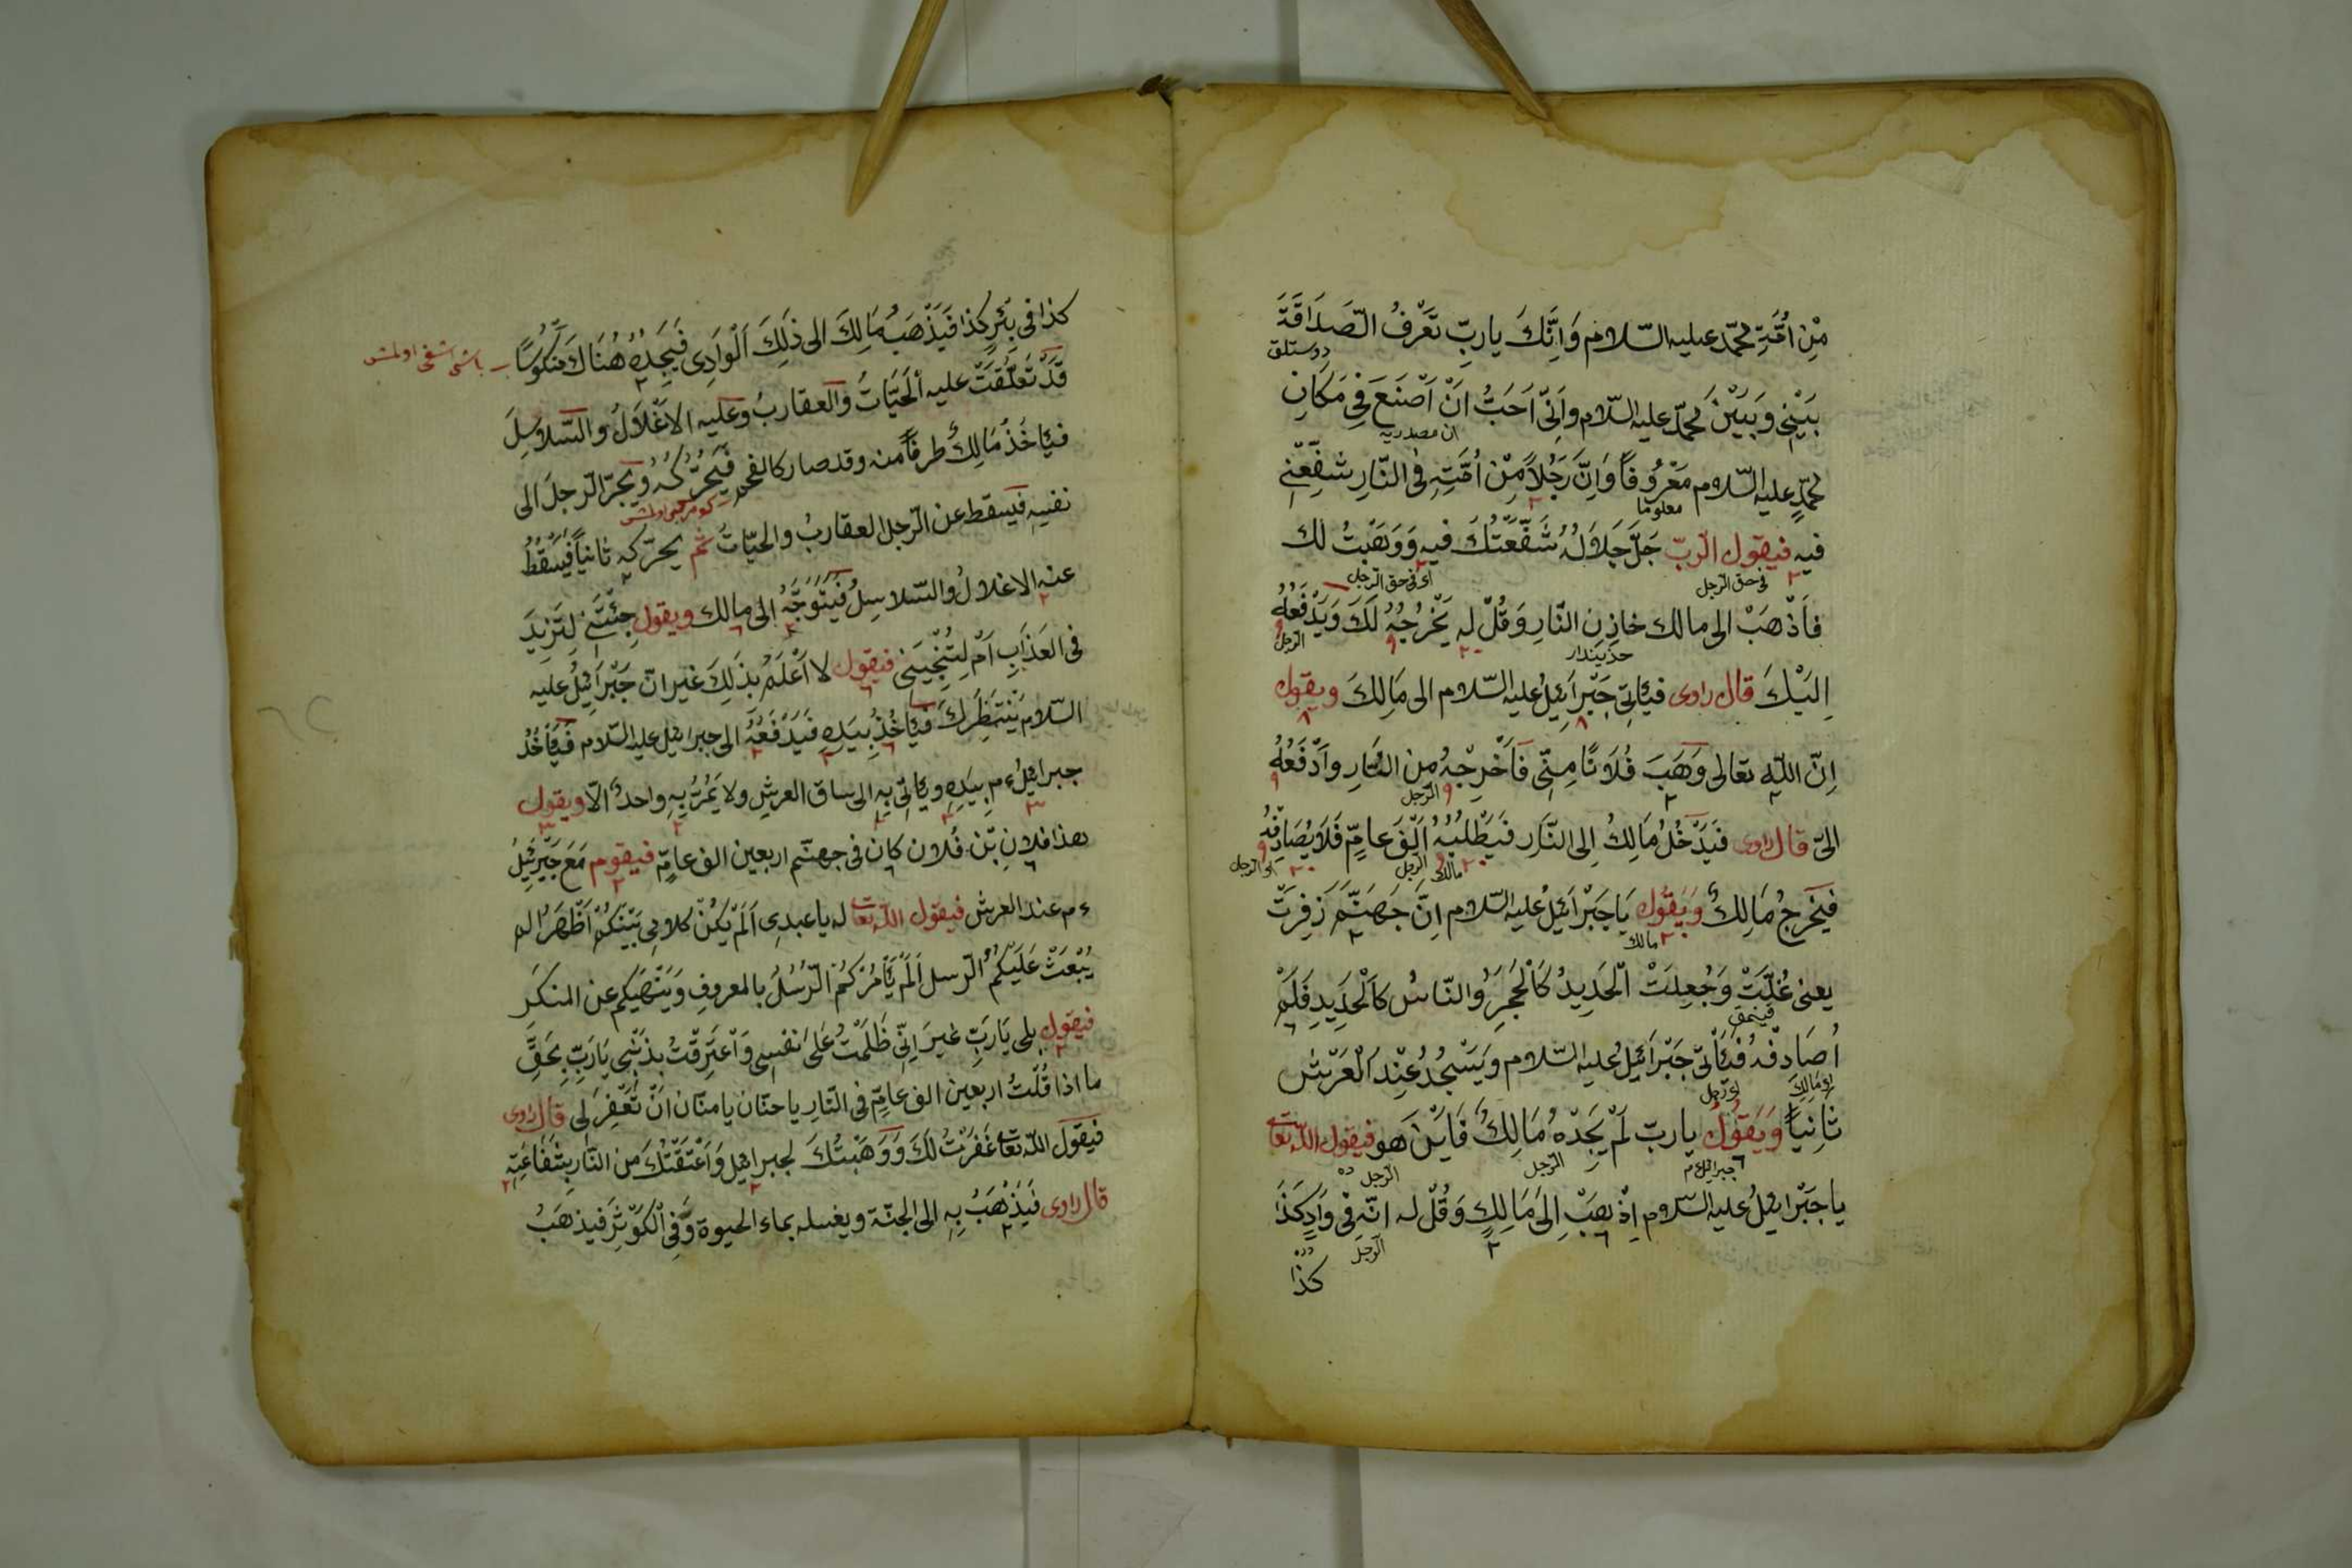 مِنْ اُمَّةِ محمّد عليه السّلام وَاِنَّكَ يا ربِّ تَعْرِفُ الصَّدَاقَةَ
دوستلق
بَيْنِى وَبَيْنَ محمّد عليه السّلام وَاَنِّى اَحَبْتُ اَنْ اَصْنَعَ فِى مَكَانِ
ان مصدريه
محمّدٍ عليه السّلام مَعْرُوفاً وَاِنَّ رَجُلاً مِنْ اُمَّتِهِ فى النَّارِ شَفِّعْنِى
معلوما
فيه فيقول الرّبّ جَلَّ جَلَالُهُ شَفَّعْتُكَ فيه وَوَهَبْتُ لك
فى حق الرّجل اى فى حق الرّجل
فَاذْهَبْ الى مالك خازِنِ النَّارِ وَقُلْ له يُخْرِجُهُ لَكَ وَيَدْفَعُهُ
حزيندار الرّجل
اِلَيْكَ قال راوى فيَأتِى جَبْرَائِيلُ عليه السّلام الى مَالِكَ ويقول
اِنّ اللّه تعالى وَهَبَ فُلَانًا مِنِّى فَاَخْرِجْهُ مِنَ النَّارِ وَاَدْفَعُهُ
الرّجل
الىّ قال راوى فَيَدْخُلُ مَالِكُ اِلى النَّار فَيَطْلُبُهُ اَلْفَ عامٍّ فَلَا يُصَادِفُهُ
مالك الرّجل اى الرّجل
فَيَخْرجُ مَالِكُ وَيَقُولُ يَا جَبْرَائِيلُ عليه السّلام اِنَّ جَهَنَّمَ زَفِرَتْ
مالك
يعنى غُلِيَتْ وَجُعِلَتْ الْحَدِيدُ كَالْحَجَرِ وَالنّاسُ كَالْحَدِيدِ فَلَمْ
اُصَادِفْهُ فَيَأتِى جَبْرَائِيلُ عليه السّلام وَيَسْجُدُ عِنْدَ الْعَرْشِ
اى مالك اى رجل
ثَانِياً وَيَقُولُ يا ربّ لَمْ يَجِدْهُ مَالِكُ فَاَيْنَ هو فيقول اللّه تعا
جبرائيل ٤م الرّجل الرّجل
يا جَبْرَائيلُ عليه السّلام اِذْهَبْ اِلَى مَالِكٍ وَقُلْ له انّه فِى وَادٍ كَذَا
الرّجل
كذا
كذا فى بِئْرٍ كذا فَيَذْهَبُ مَالِكَ الى ذَلِكَ اَلْوَادِى فَيَجِدُهُ هُنَاكَ مَنْكُوسًا
باشى اشغى اولمش
قَدْ تَعَلَّقَتْ عليه اَلْحَيَّاتُ وَالعقاربُ وعليه الاَغْلَالُ والسّلاسِلَ
فيَأخُذُ مَالِكُ طرفاً منه وقد صار كالفحم فَيُحَرِّكُهُ وَيَجُرُّ الرّجلَ الى
كومر كبى اولمش
نفسِهِ فيسقط عن الرّجل العقاربُ والحيّاتُ ثم يحرّكه ثانياً فَيَسْقُطُ
عنه الاغلالُ والسّلاسِلُ فَيَتَوَجَّهُ الى مالك ويقول جِئْتَنِى لِتَزِيدَ
فى العَذَابِ اَمْ لِتُنْجِيَنِى فيقول لا اَعْلَمُ بذَلِكَ غَيْرَ انّ جَبْرَائِيلُ عليه
السّلام يَنْتَظِرَكَ فَيَأخُذُ بِيَدِهِ فَيَدْفَعُهُ الى جبرائيل عليه السّلام فَيَأخُذُ
جبرائيلُ ٤م بِيَدِهِ ويَأتِى بِهِ الى ساق العرشِ ولا يَمُرُّ بِهِ واحدٌ الّا ويقول
هذا فلانِ بْن فُلان كان فى جهنّم اربعين الف عامٍّ فيقوم مَعَ جَبْرَئِيلُ
٤م عند العرش فيقول اللّه تعا له يا عبدِى اَلَمْ يَكُنْ كلامِى بَيْنَكُمْ اَظْهَرَ الم
يُبْعَثْ عَلَيْكُمُ الرّسل اَلَمْ يَأمُرْكُمُ الرُّسُلُ بالمعروفِ وَيَنْهَيكم عن المنكَرَ
فيقول بلى يَا رَبِّ غيرَ اِنّى ظَلَمْتُ عَلَى نفسِى وَاعْتَرِفْتُ بِذَنْبِى يَا رَبِّ بِحَقِّ
ما اذا قُلْتُ اربعين الف عامٍّ فى النّارِ يا حنّان يا منّان اَنْ تَغْفِرَلِى قال راوى
فيقول اللّه تعا غَفَرْتُ لَكَ وَوَهَبْتُكَ لجبرائيل وَاَعْتَقْتُكَ من النّارِ بِشَفَاعَتِهِ
قال راوى فَيَذْهَبُ بِهِ الى الجنّة ويغسله بماء الحيوة وَفِى الْكَوْثَرِ فيذهَبُ